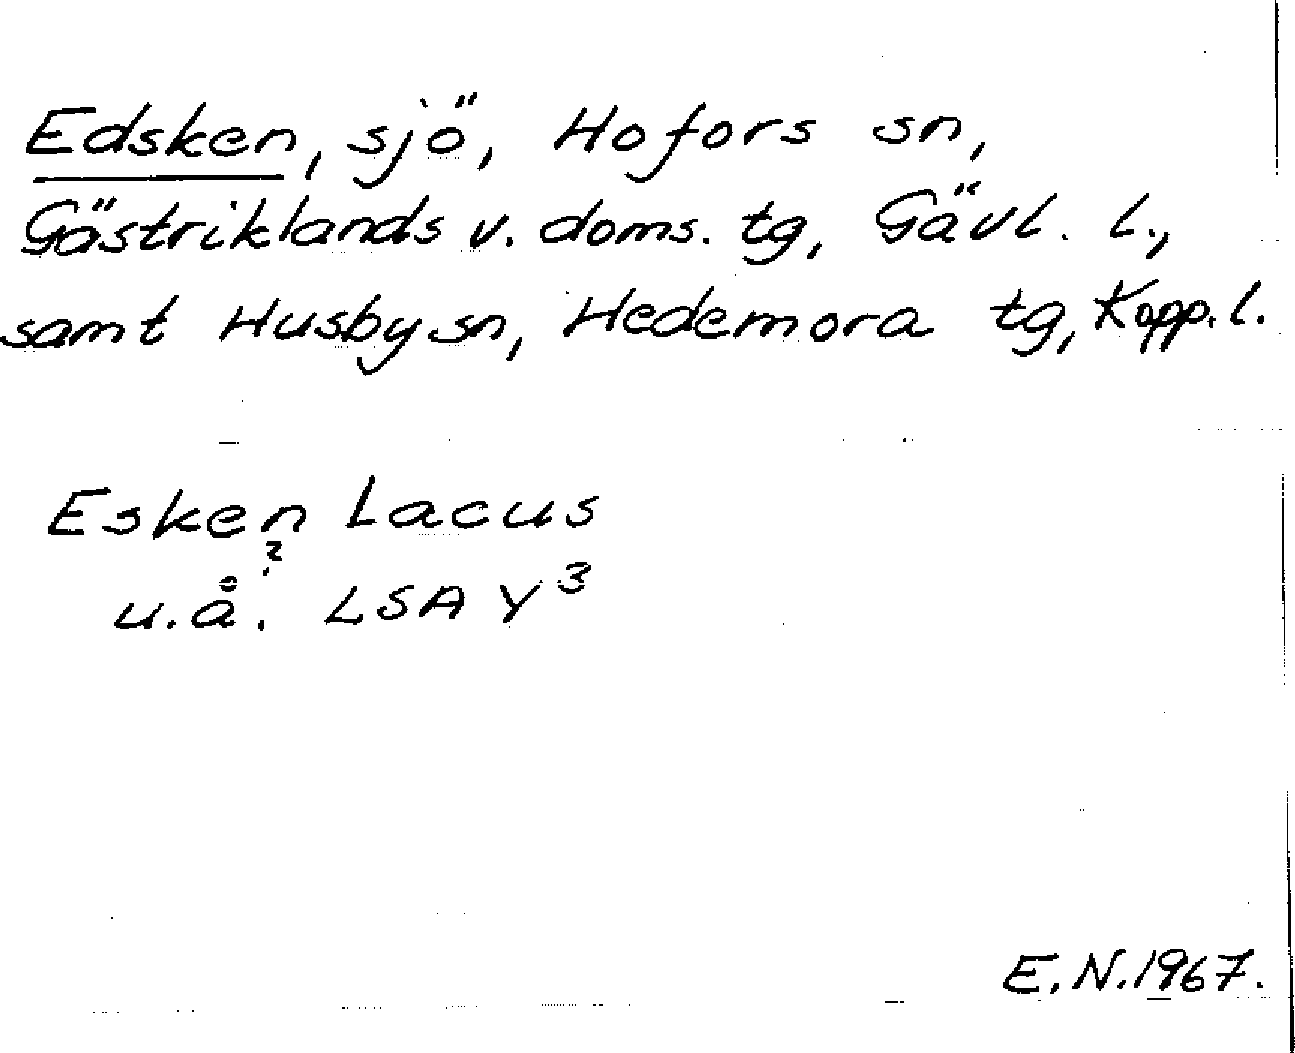 Edsken, sjö, Hofors sn,
Gästriklands v. doms. tg, Gävl. l.,
samt Husby sn, Hedemora tg, Kopp. l.
Esken Lacus
?
u.å. LSA Y³
E.N. 1967.